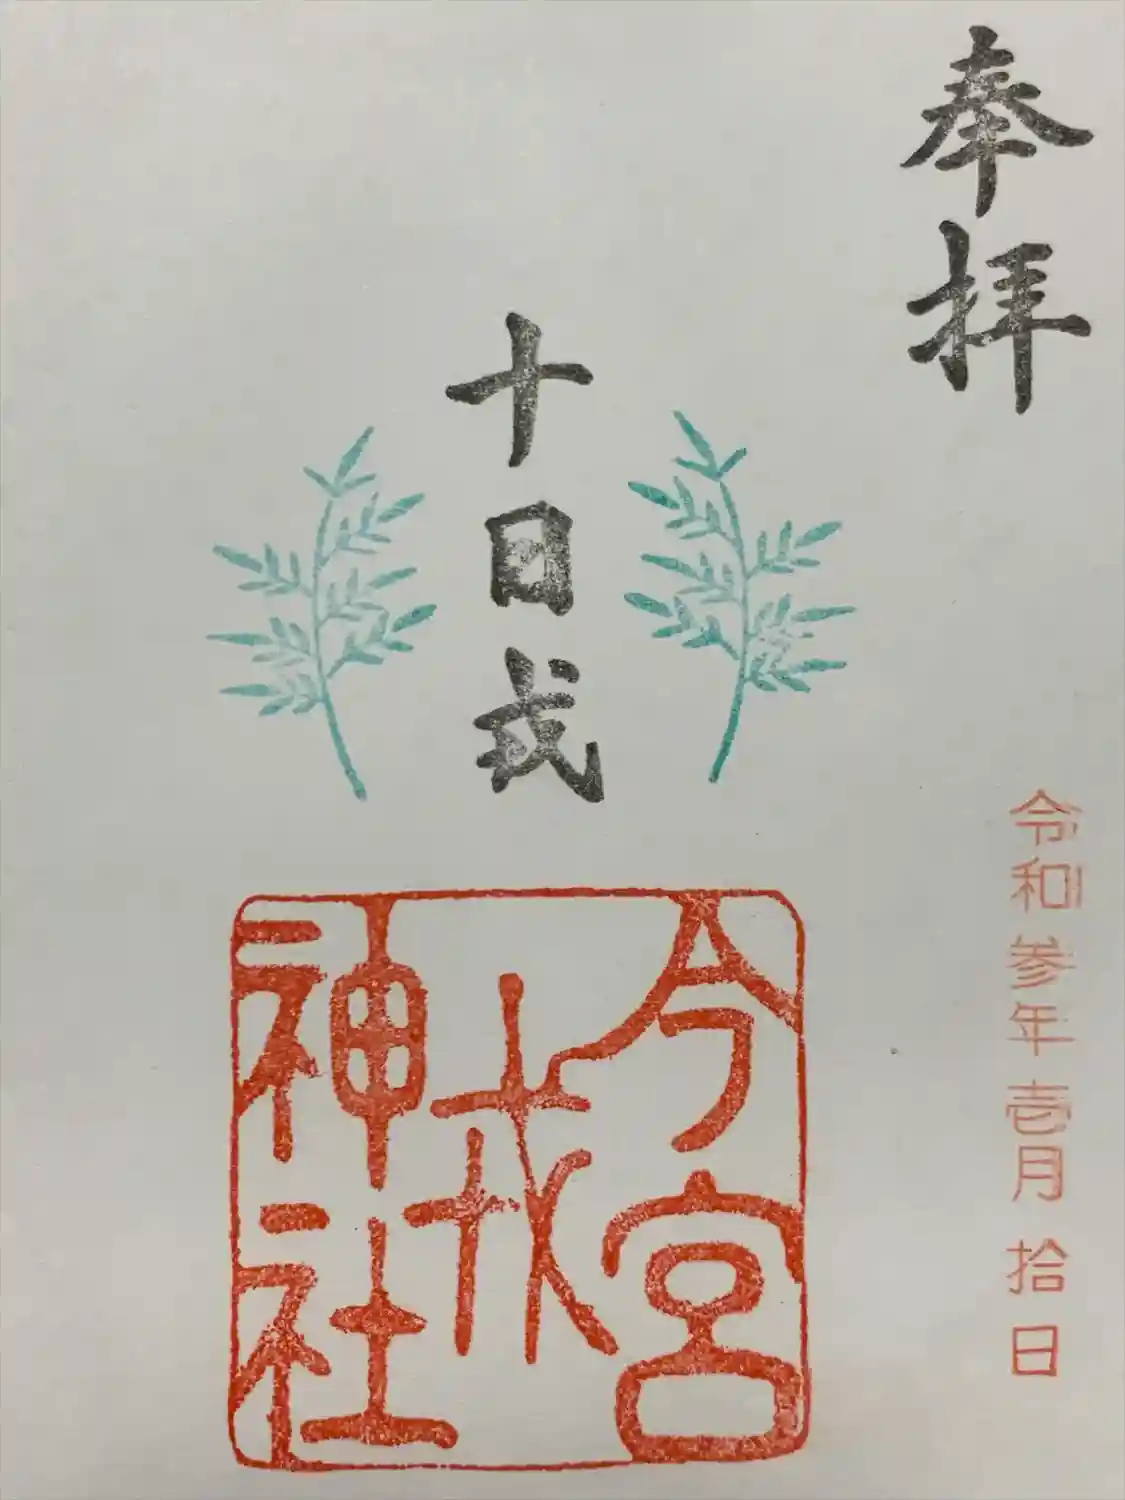 奉拝
十日戎
今宮
戎
神社
令和参年壱月拾日